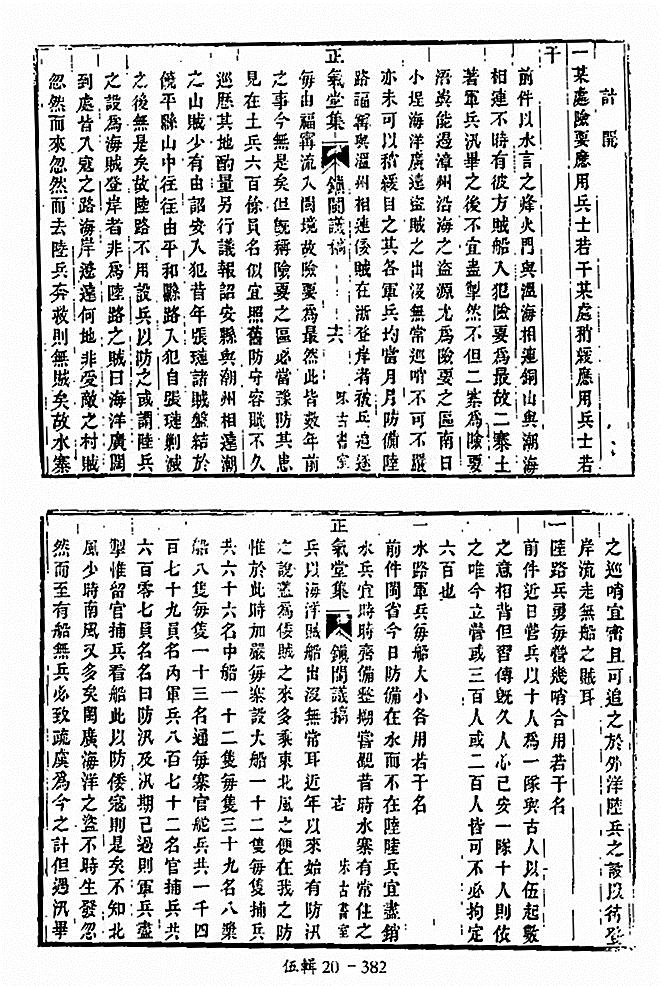 計開
一某處險要應用兵士若干某處稍緩應用兵士若
干
前件以水言之烽火門與溫海相連銅山與潮海
相連不時有彼方賊船入犯險要爲最故二寨土
著軍兵汛畢之後不宜盡掣然不但二寨爲險要
浯嶼能過漳州沿海之盜源尤爲險要之區南日
小埕海洋廣遠盜賊之出沒無常巡哨不可不嚴
亦未可以稍緩目之其各軍兵均當月月防備陸
路福寧與溫州相連倭賊在浙登岸者被兵追逐
正氣堂集 鎮閩議稿 六 味古書室
每由福寧流入閩境故險要爲最然此皆數年前
之事今無是矣但旣稱險要之區必當謹防其患
見在土兵六百餘員名似宜照舊防守容職不久
巡歷其地酌量另行議報詔安縣與潮州相連潮
之山賊少有由詔安入犯昔年張璉諸賊盤結於
饒平縣山中往往由平和縣路入犯自張璉剿滅
之後無是矣故陸路不用設兵以防之或謂陸兵
之設爲海賊登岸者非爲陸路之賊曰海洋廣闊
到處皆入寇之路海岸遼遠何地非受敵之村賊
忽然而來忽然而去陸兵奔救則無賊矣故水寨
之巡哨宜密且可追之於外洋陸兵之設以待登
岸流走無船之賊耳
一陸路兵勇每營幾哨合用若干名
前件近日營兵以十人爲一隊與古人以伍起數
之意相背但習傳旣久人心已安一隊十人則依
之唯今立營或三百人或二百人皆可不必拘定
六百也
一水路軍兵每船大小各用若干名
前件閩省今日防備在水而不在陸陸兵宜盡銷
水兵宜時時齋備整搠嘗觀昔時水寨有常住之
正氣堂集 鎮閩議稿 七 味古書室
兵以海洋賊船出沒無常耳近年以來始有防汛
之說蓋爲倭賊之來多乘東北風之便在我之防
惟於此時加嚴每寨設大船一十二隻每隻捕兵
共六十六名中船一十二隻每隻三十九名八槳
船八隻每隻一十三名通每寨官舵兵共一千四
百七十九員名丙軍兵八百七十二名官捕兵共
六百零七員名名曰防汛及汛期已過則軍兵盡
掣惟留官捕兵看船此以防倭寇則是矣不知北
風少時南風又多矣閩廣海洋之盜不時生發忽
然而至有船無兵必致疏虞爲今之計但遇汛畢
伍輯 20－382